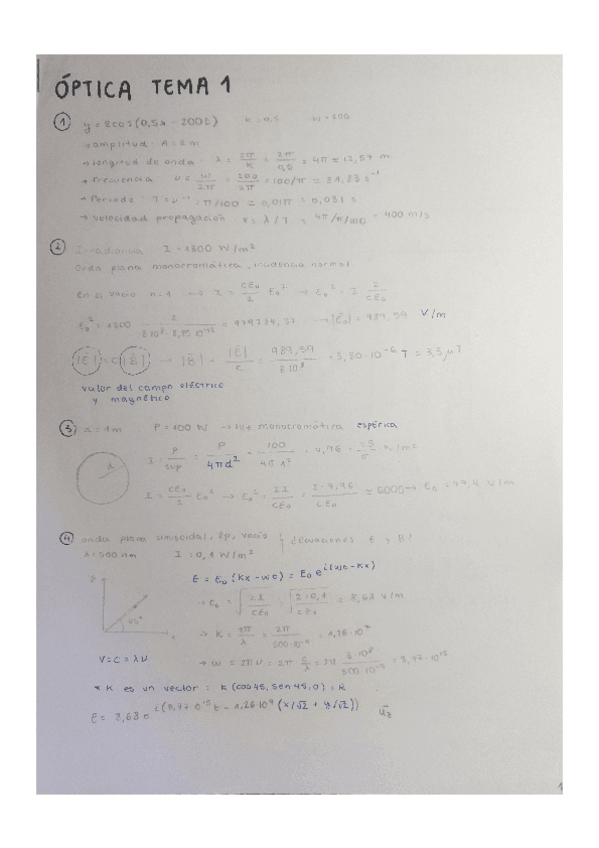 ÓPTICA TEMA 1
① y = 2cos(0,5x - 200t) K = 0,5 w = 200
→ amplitud: A = 2 m
→ longitud de onda: λ = 2π/K = 2π/0,5 = 4π ≅ 12,57 m
→ Frecuencia ν = w/2π = 200/2π = 100/π ≅ 31,83 s⁻¹
→ Periodo: T = ν⁻¹ = π/100 ≅ 0,01π = 0,031 s
→ velocidad propagación: v = λ/T = 4π/π/100 = 400 m/s
② Irradiancia I = 1300 W/m²
Onda plana monocromática, incidencia normal
En el vacío n = 1 → I = cε₀/2 E₀² → E₀² = I 2/cε₀
E₀² = 1300 → |E₀| = 989,59 V/m
|E| = c|B| → |B| = |E|/c = 989,59/3·10⁸ = 3,30·10⁻⁶ T = 3,3 μT
valor del campo eléctrico
y magnético
③ P = 100 W → luz monocromática esférica
I = P/sup = P/4πd² = 100/4π·1² = 7,96
I = cε₀/2 E₀² → E₀² = 2I/cε₀ = 2·7,96/cε₀ ≅ 6000 → E₀ = 77,4 V/m
④ onda plana sinusoidal, vacío ¿ecuaciones E y B?
λ = 500 nm I = 0,1 W/m²
E = E₀ (Kx - wt) = E₀ e^i(wt - Kx)
→ E₀ = √2I/cε₀ = √2·0,1/cε₀ = 8,68 V/m
45°
→ K = 2π/λ = 2π/500·10⁻⁹ = 1,26·10⁷
V = C = λν
→ w = 2πν = 2π c/λ = 2π 3·10⁸/500·10⁻⁹ = 3,77·10¹⁵
* K es un vector: K(cos45, sen45, 0) = K
E = 8,68 e^i(3,77·10¹⁵t - 1,26·10⁷(x/√2 + y/√2)) u_z
1